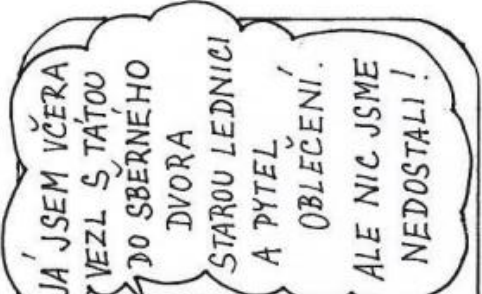 JÁ JSEM VČERA
VEZL S TÁTOU
DO SBĚRNÉHO
DVORA
STAROU LEDNICI
A PYTEL
OBLEČENÍ.
ALE NIC JSME
NEDOSTALI!